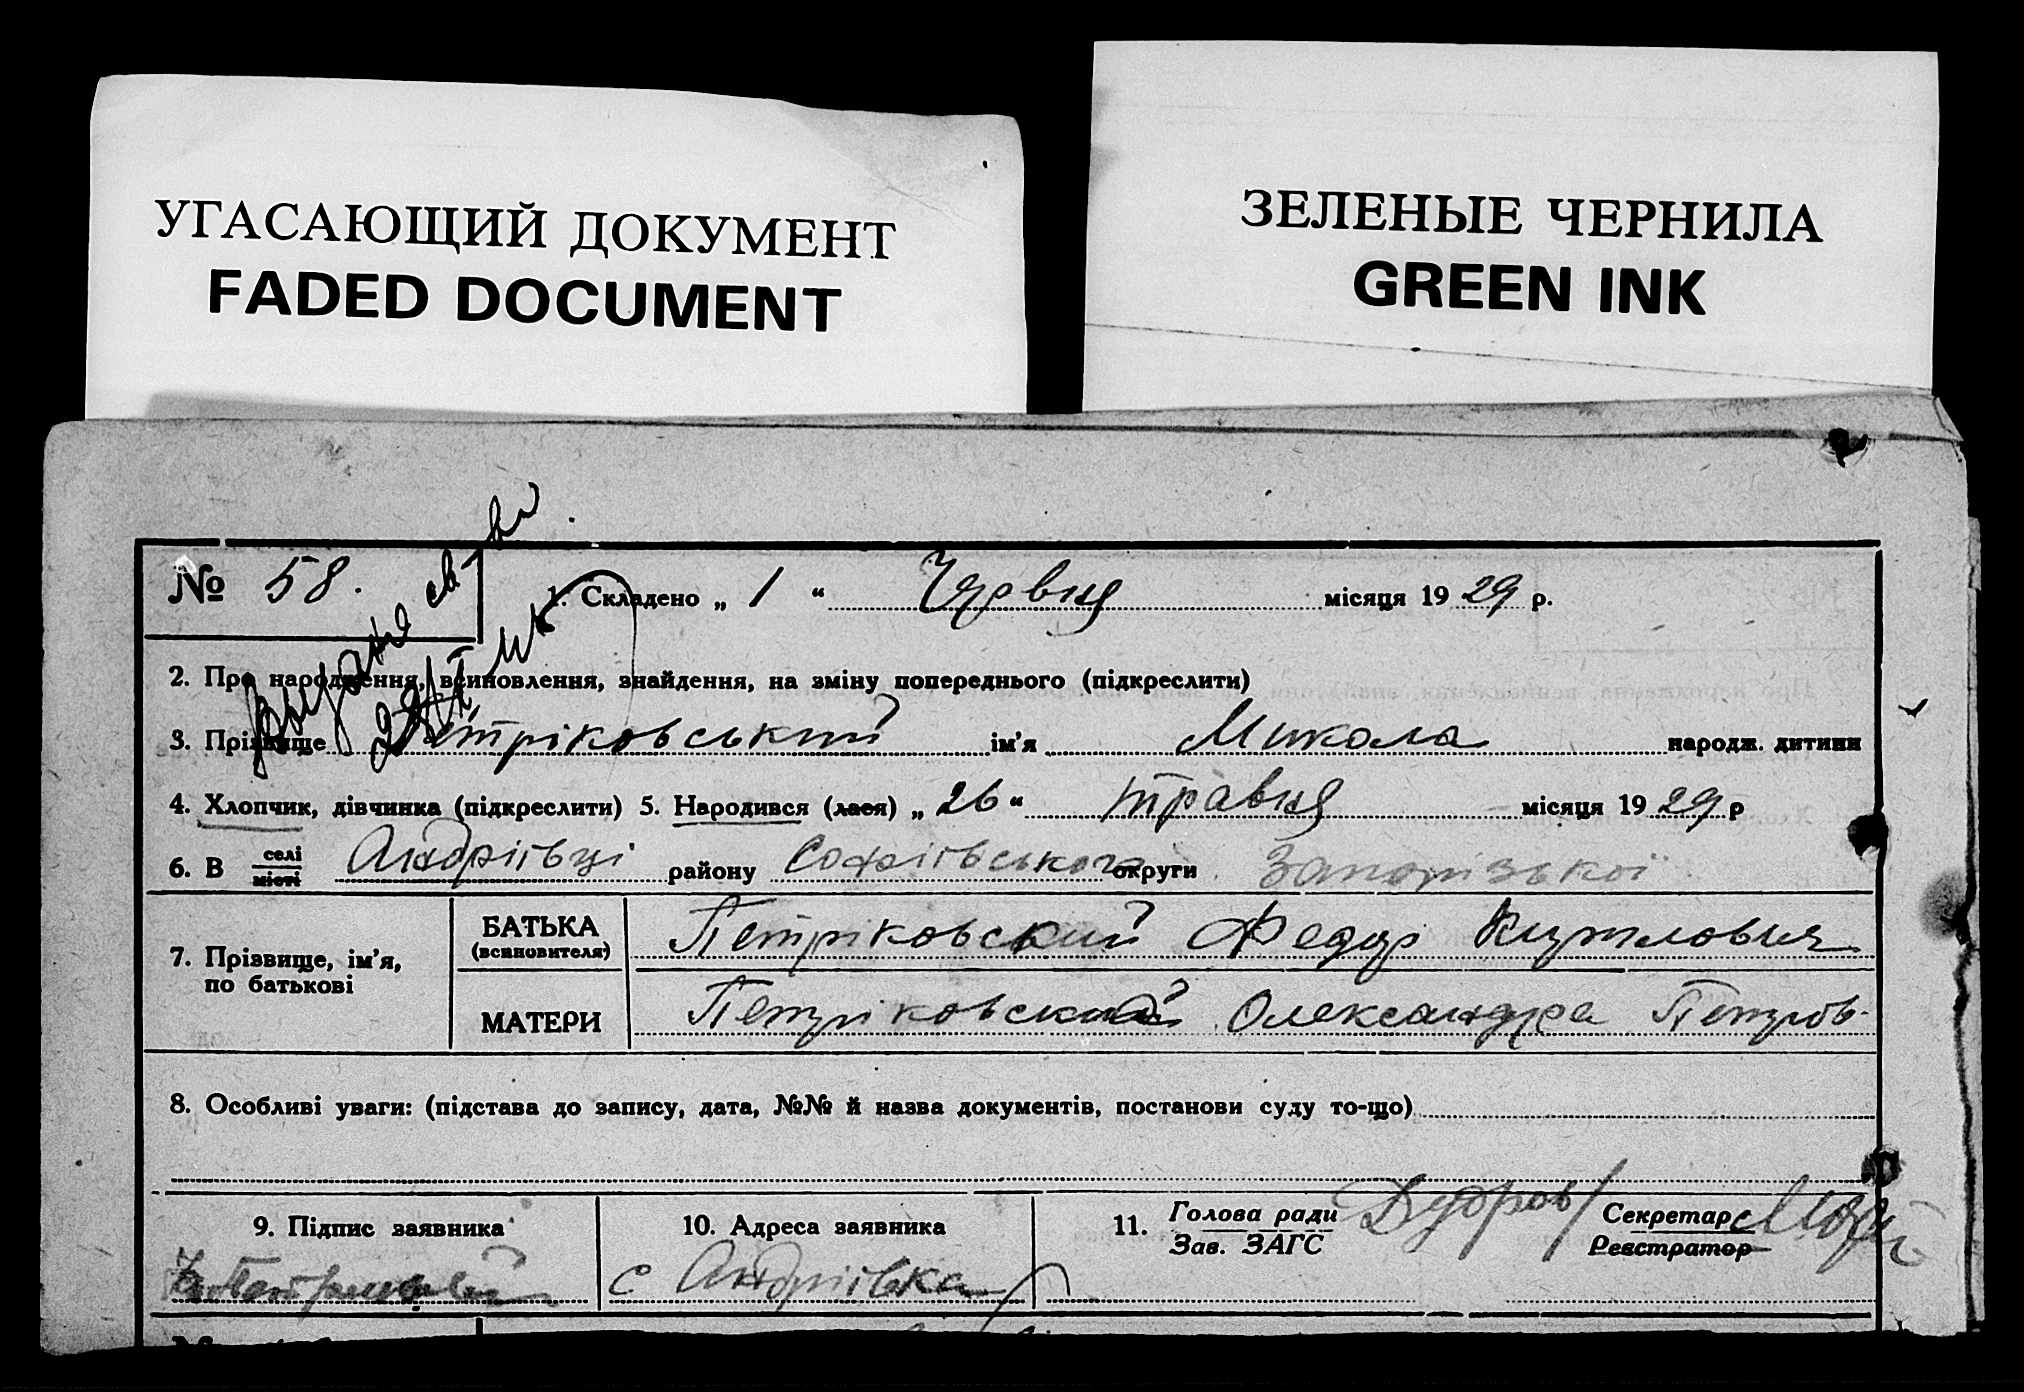 УГАСАЮЩИЙ ДОКУМЕНТ
FADED DOCUMENT
ЗЕЛЕНЫЕ ЧЕРНИЛА
GREEN INK
№ 58.
1. Складено „ 1 “ Червця місяця 1929 р.
2. Про народження, всиновлення, знайдення, на зміну попереднього (підкреслити)
3. Прізвище Петріковський ім'я Микола народж. дитини
4. Хлопчик, дівчинка (підкреслити) 5. Народився (лася) „ 26 “ травця місяця 1929 р
6. В селі місті Андріївці району Софіївського округи Запорізької
7. Прізвище, ім'я, по батькові
БАТЬКА (всиновителя) Петріковский Федор
МАТЕРИ Петріковский Олександра Петров-
8. Особливі уваги: (підстава до запису, дата, №№ й назва документів, постанови суду то-що)
9. Підпис заявника
10. Адреса заявника
с Андріівка
11. Голова ради Зав. ЗАГС
Секретар Реєстратор